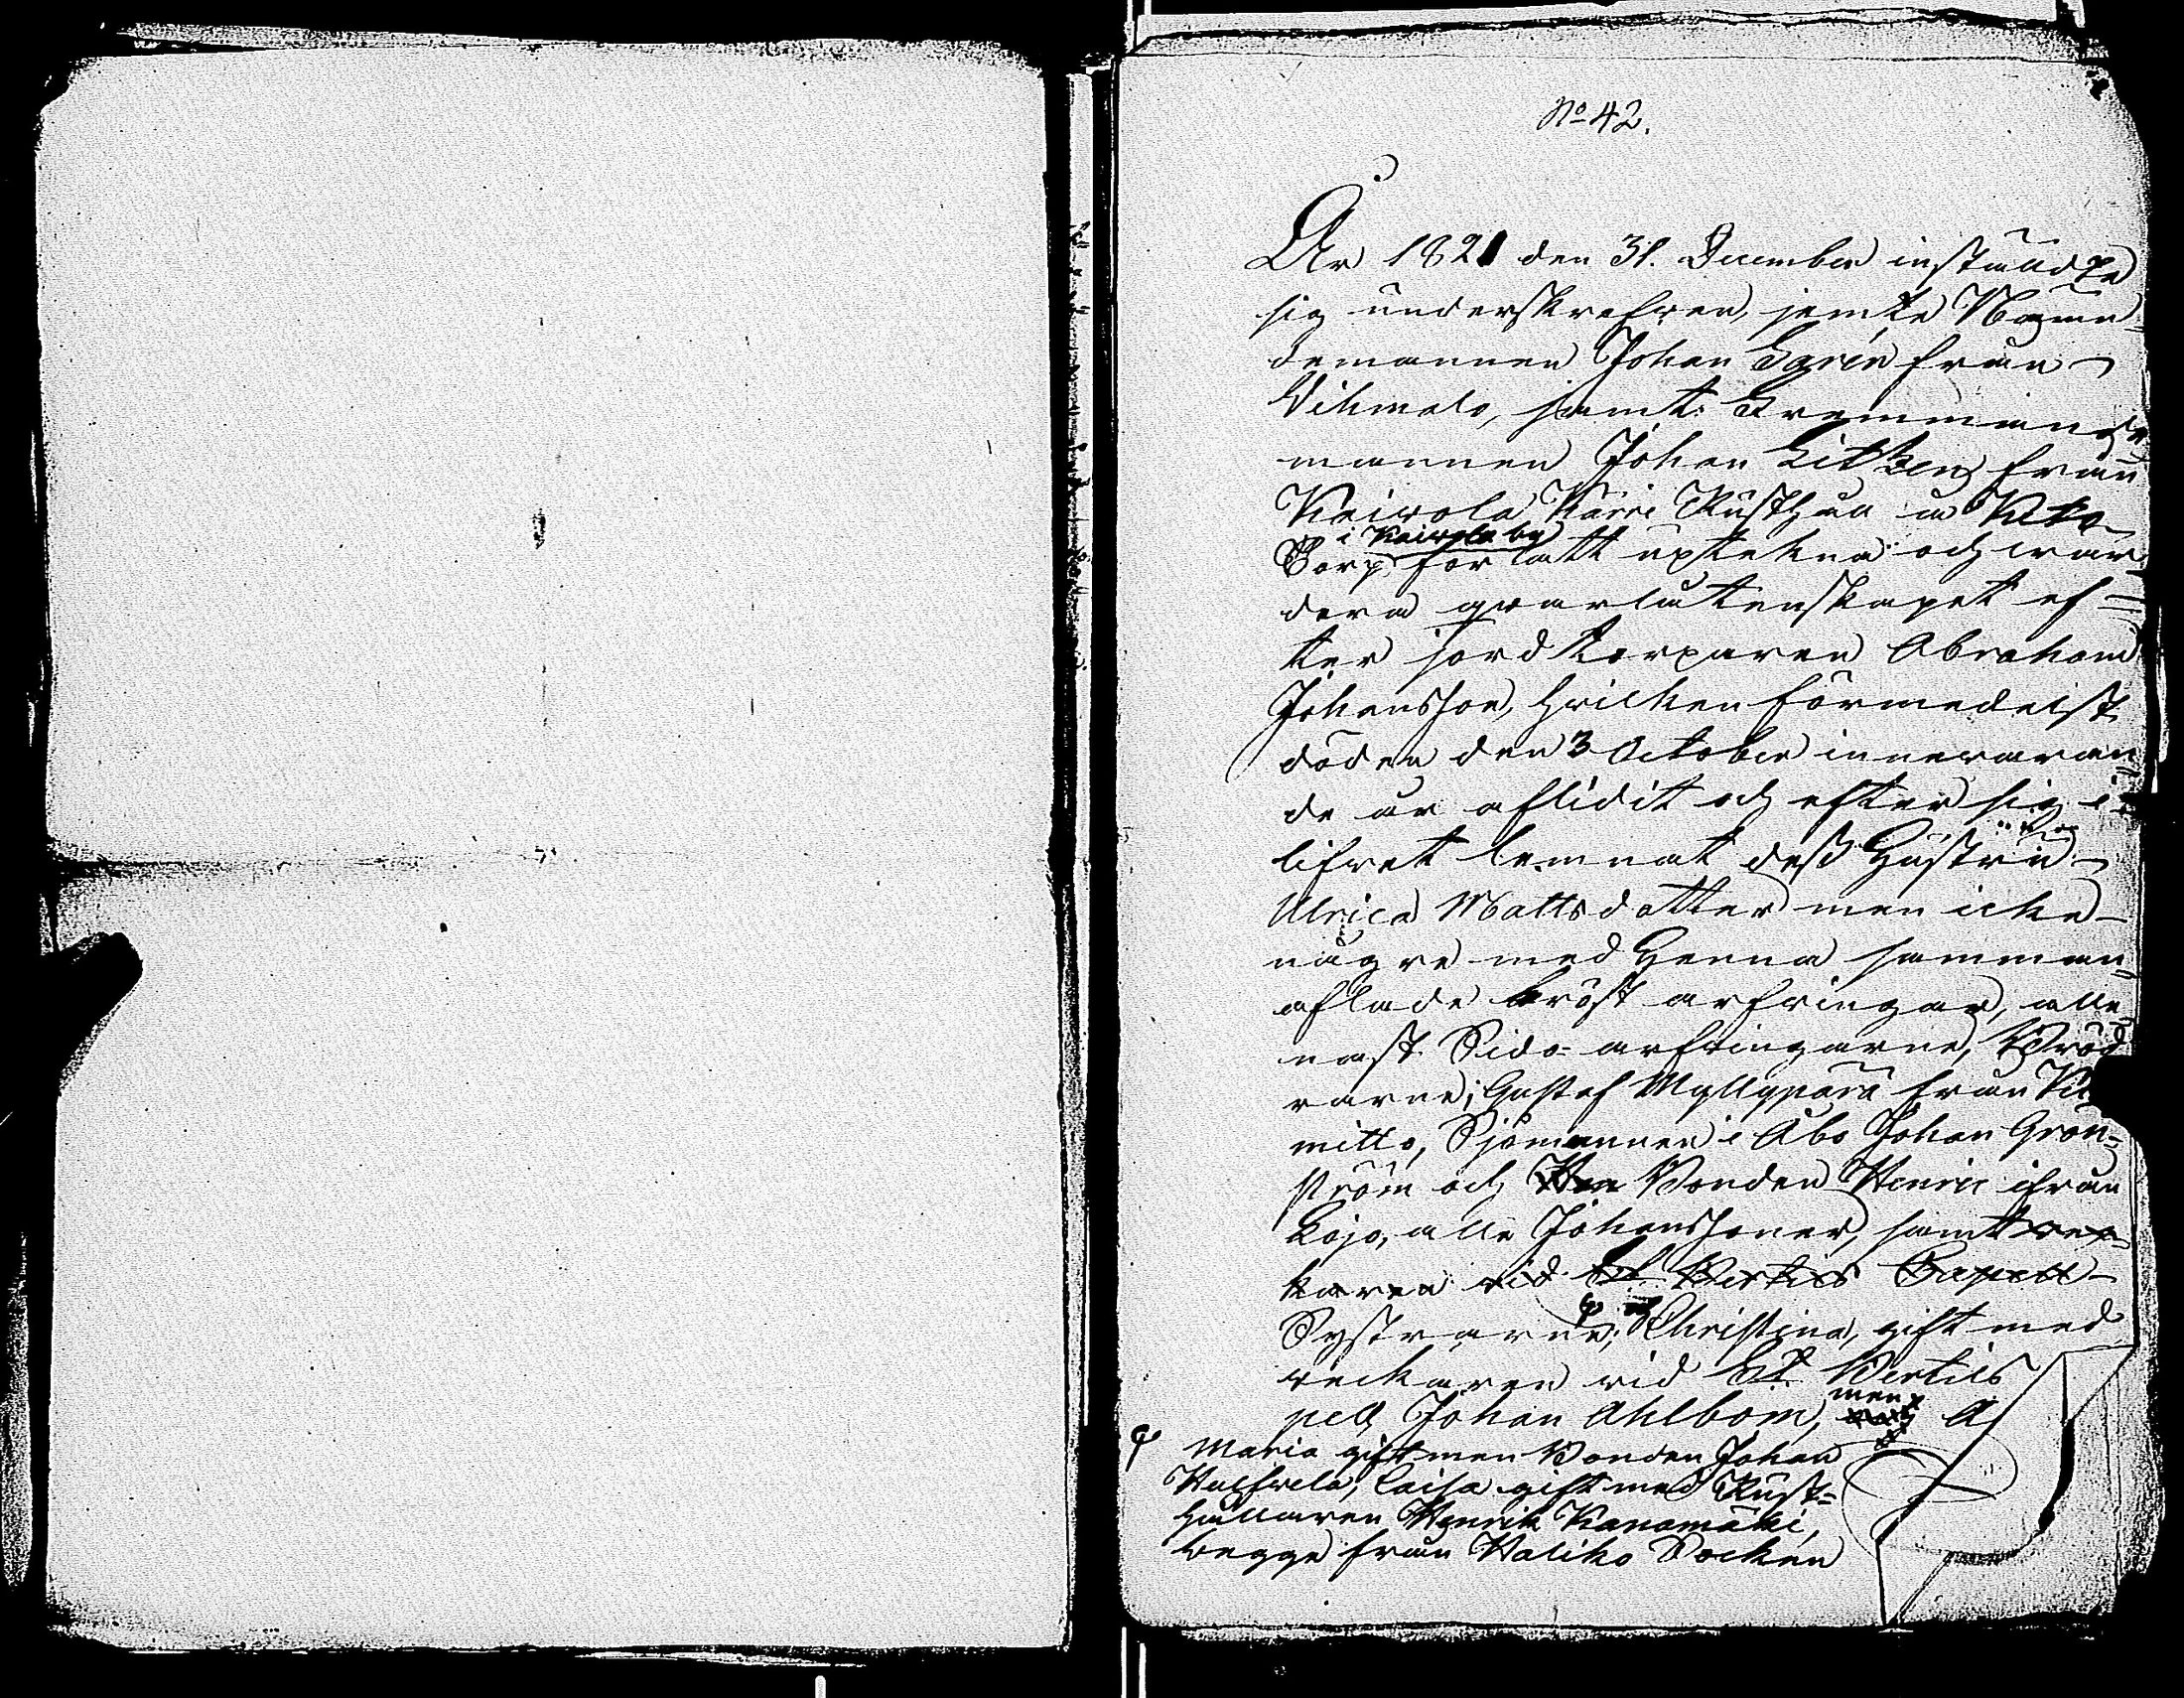 No 42.
År 1821 den 31. December instälde
sig underskrefwen, jemte Nämn-
demannen Johan Egrén från
Vihmalo, samt Kronnämnde
mannen Johan Litzen från
Kaiwola Kärri Rusthåll a
i Kaiwola by
Torp för att uptekna och wär-
dera qwarlåtenskapet ef-
ter jordtorparen Abraham
Johansson, hwilken förmedelst
döden den 3 October innewaran
de år aflidit och efter sig i
lifwet lemnat dess Hustru
Ulrica Mattsdotter men icke
några med Henne samman
aflade bröst arfwingar, alle-
nast Sido-arfwingarne, Bröd
rarne; Gustaf Myllyperä från Ki
mitto, Sjömannen i Åbo Johan Grön-
ström och Bonden Henric ifrån
Lojo, alla Johanssoner, samt wä-
karen wid St Bertils Capell
Systrarne; Christina, gift med
wäckaren wid St. Bertils
pell Johan Ahlbom, men A
Maria gift men Bonden Johan
Halfwela, Caisa gift med Rust-
hållaren Henrik Kanamäki,
begge från Haliko Socken